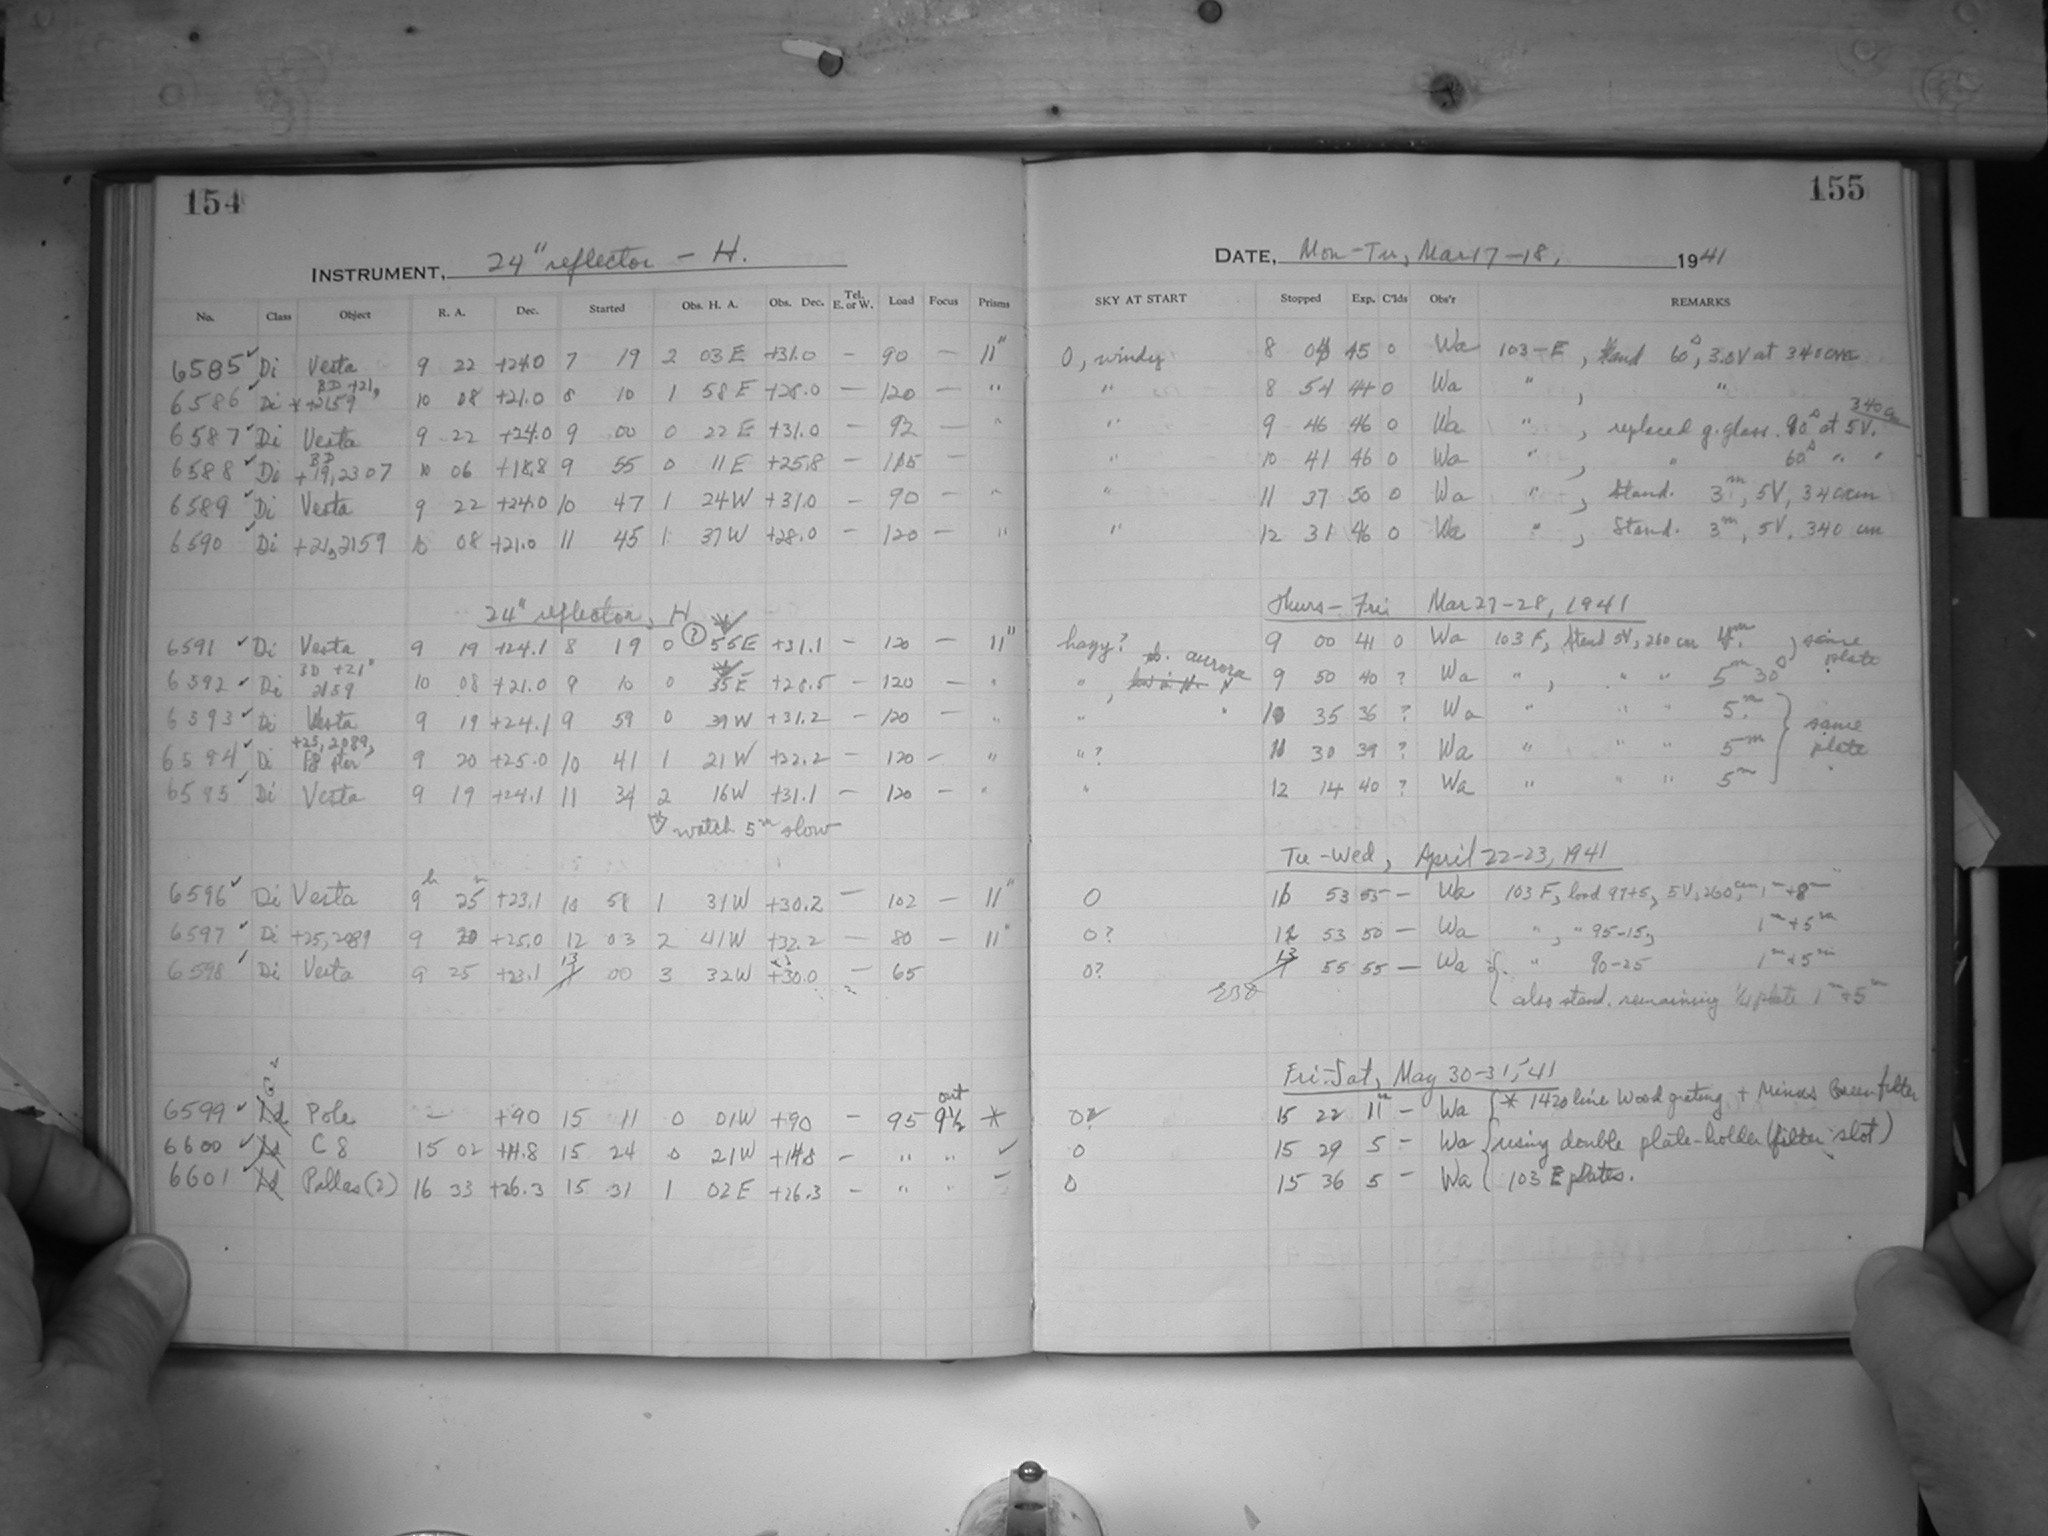 154
INSTRUMENT, 24" reflector - H.
No. Class Object R. A. Dec. Started Obs. H. A. Obs. Dec. Tel. E. or W. Load Focus Prisms
6585 ✓ Di Vesta 9 22 +24.0 7 19 2 03 E +31.0 - 90 - 11"
6586 ✓ Di * BD +21, +2159 10 08 +21.0 8 10 1 58 E +28.0 - 120 - "
6587 ✓ Di Vesta 9 22 +24.0 9 00 0 22 E +31.0 - 92 - "
6588 ✓ Di BD +19,2307 10 06 +18.8 9 55 0 11 E +25.8 - 115 - "
6589 ✓ Di Vesta 9 22 +24.0 10 47 1 24 W +31.0 - 90 - "
6590 ✓ Di +21,2159 10 08 +21.0 11 45 1 37 W +28.0 - 120 - "
24" reflector, H
6591 ✓ Di Vesta 9 19 +24.1 8 19 0 (?) 55 E +31.1 - 120 - 11"
6592 ✓ Di BD +21° 2159 10 08 +21.0 9 10 0 35 E +28.5 - 120 - "
6593 ✓ Di Vesta 9 19 +24.1 9 59 0 39 W +31.2 - 120 - "
6594 ✓ Di +25, 2089, F8 star 9 20 +25.0 10 41 1 21 W +22.2 - 120 - "
6595 ✓ Di Vesta 9 19 +24.1 11 34 2 16 W +31.1 - 120 - "
watch 5m slow
6596 ✓ Di Vesta 9h 25m +23.1 10 58 1 31 W +30.2 - 102 - 11"
6597 ✓ Di +25,2089 9 20 +25.0 12 03 2 41 W +32.2 - 80 - 11"
6598 ✓ Di Vesta 9 25 +23.1 13 00 3 32 W +30.0 - 65
out
6599 ✓ Pole - +90 15 11 0 01 W +90 - 95 9½ *
6600 ✓ C 8 15 02 +14.8 15 24 0 21 W +14.8 - " " ✓
6601 ✓ Pallas (2) 16 33 +26.3 15 31 1 02 E +26.3 - " " ✓
155
DATE, Mon-Tu, Mar 17-18, 1941
SKY AT START Stopped Exp. C'lds Obs'r REMARKS
0, windy 8 04 45 0 Wa 103-E, Stand 60s, 3.0V at 340 cm
" 8 54 44 0 Wa " , "
" 9 46 46 0 Wa " , replaced g. glass. 90s at 5V. 340 cm
" 10 41 46 0 Wa " , " 60s " "
" 11 37 50 0 Wa " , Stand. 3m, 5V, 340 cm
" 12 31 46 0 Wa " , Stand. 3m, 5V, 340 cm
Thurs-Fri Mar 27-28, 1941
hazy? 9 00 41 0 Wa 103 F, Stand 5V, 260 cm 4m } same plate
" , aurora 9 50 40 ? Wa " , " " 5m 30s
" " 10 35 36 ? Wa " " " 5m
"? 11 30 39 ? Wa " " " 5m } same plate
" 12 14 40 ? Wa " " " 5m
Tu-Wed, April 22-23, 1941
0 11 53 55 - Wa 103 F, load 97+5, 5V, 260 cm, 1m+8m
0? 12 53 50 - Wa " , " 95-15, 1m+5m
0? 13 55 55 - Wa { " 90-25 1m+5m
also stand. remaining ¼ plate 1m+5m
Fri-Sat, May 30-31, '41
0? 15 22 11m - Wa { * 1420 line Wood grating + Minus Green filter
0 15 29 5 - Wa { using double plate-holder (filter slot)
0 15 36 5 - Wa { 103 E plates.